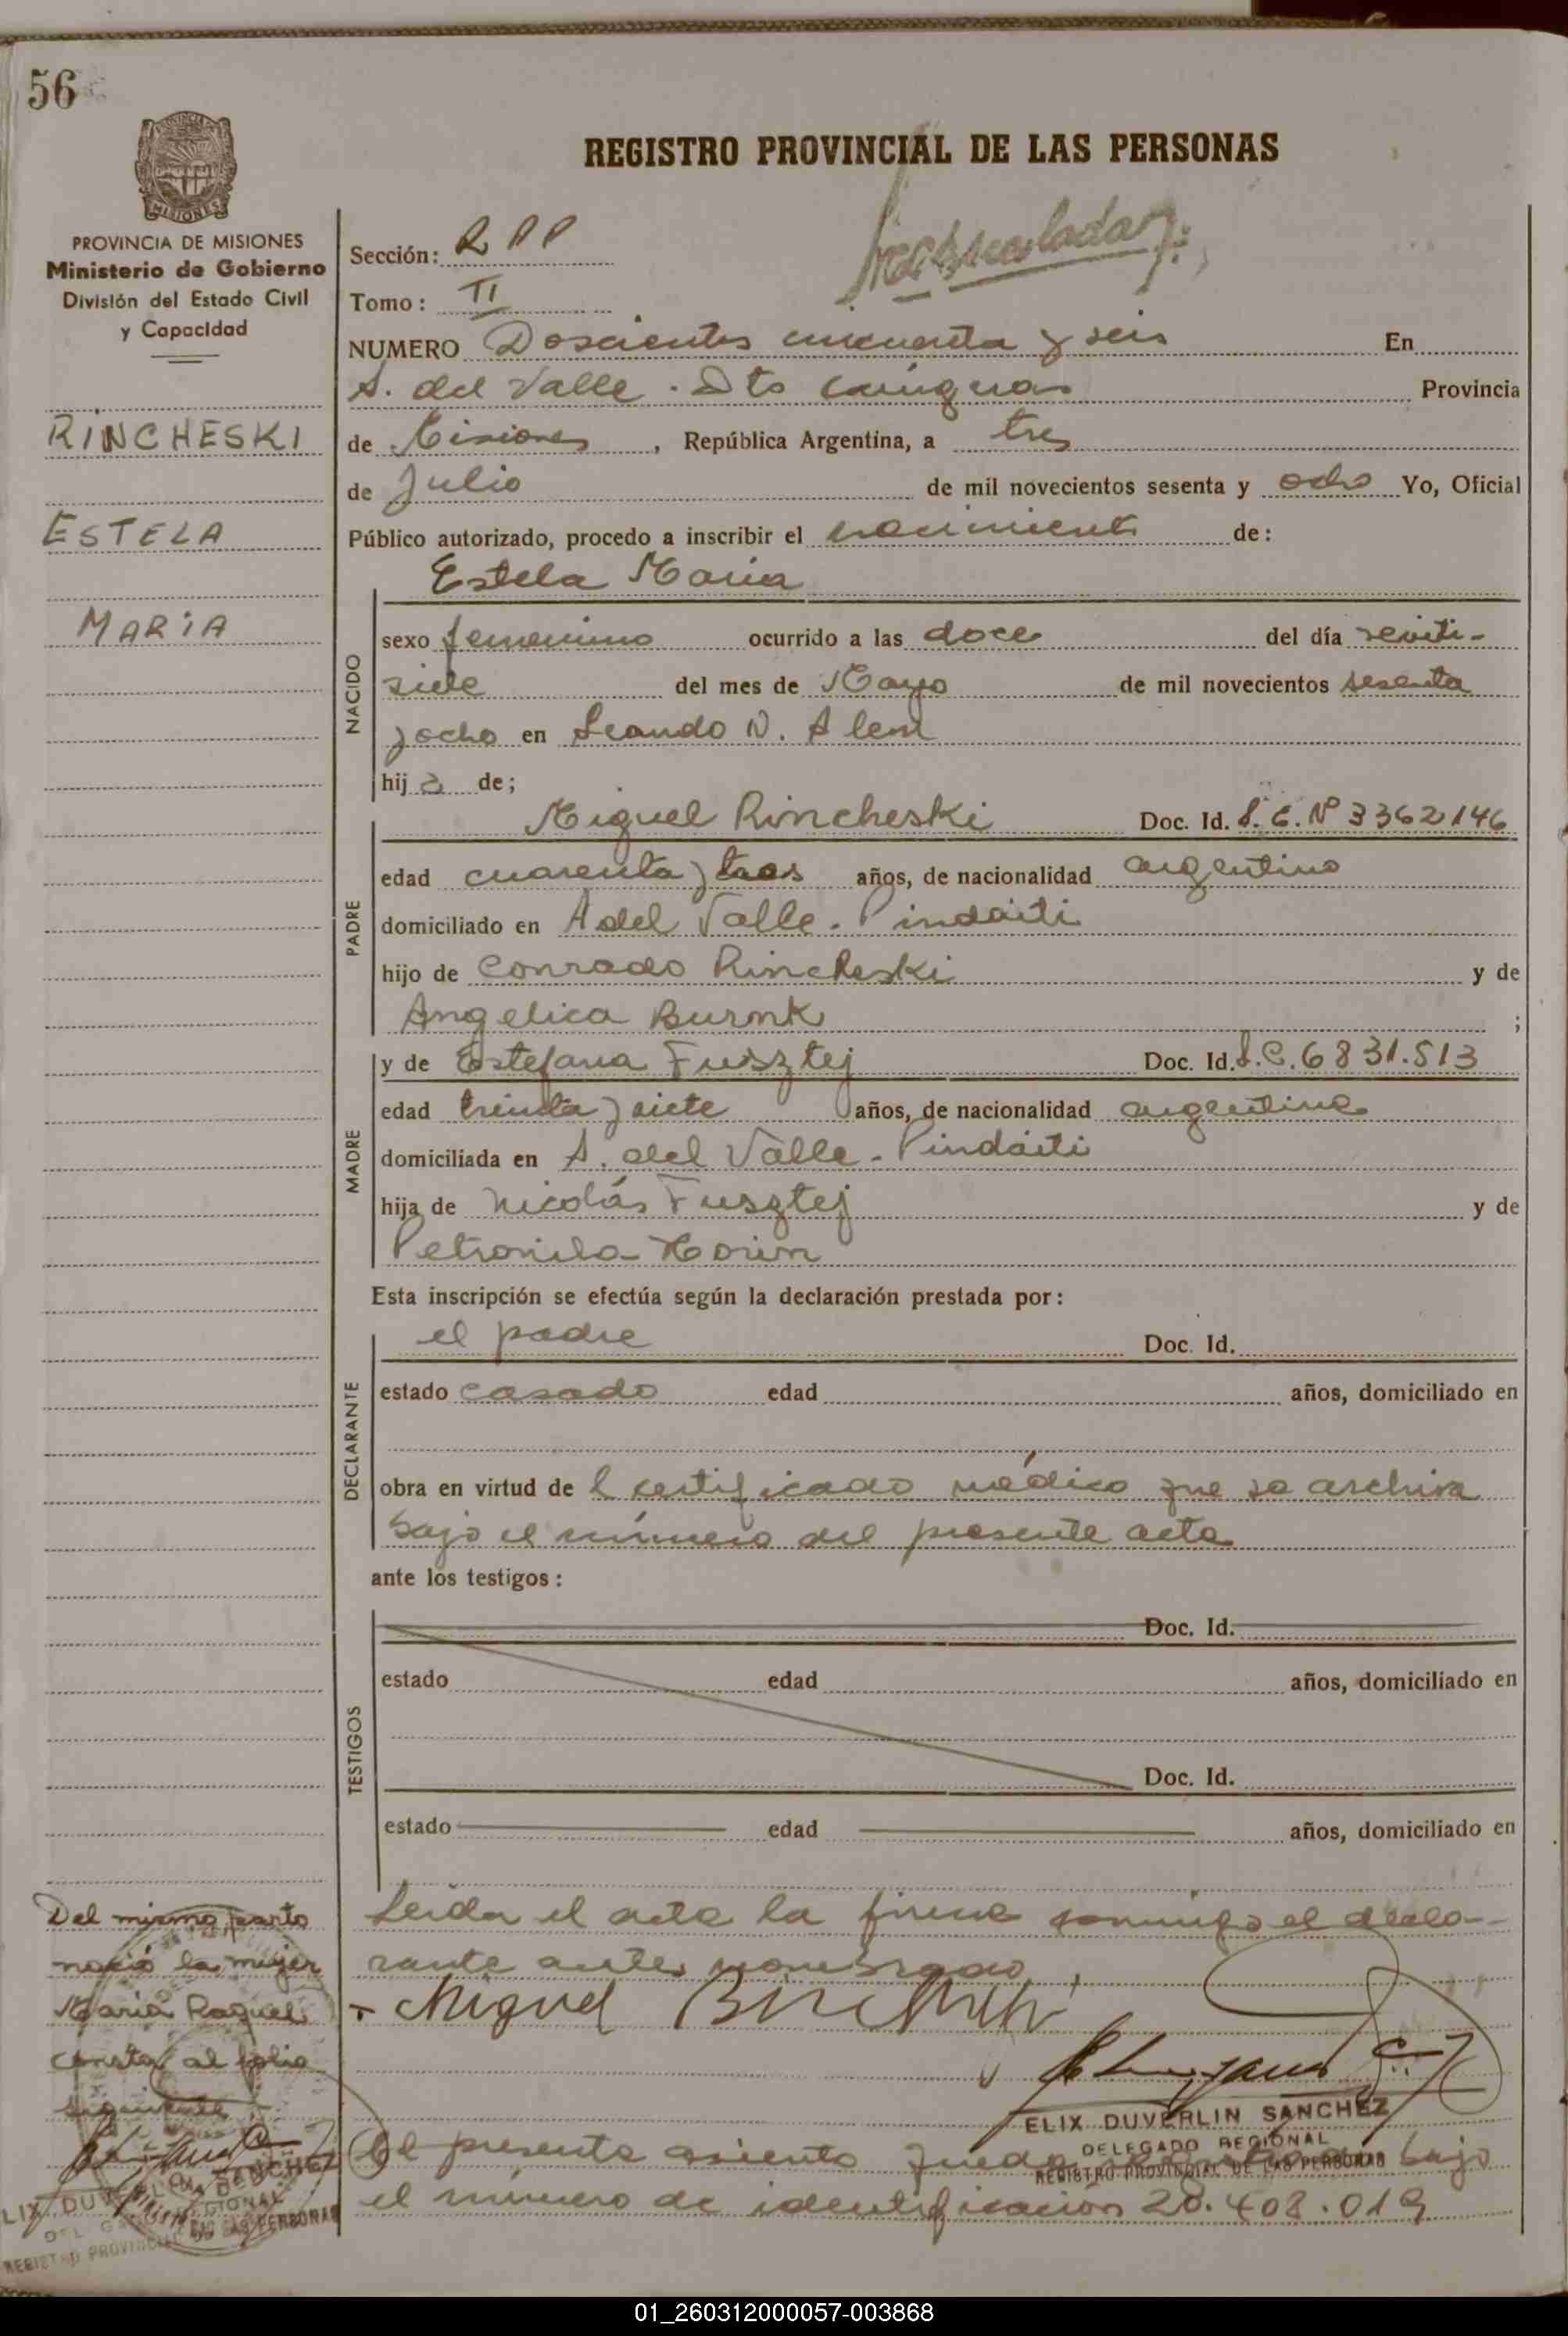 56
REGISTRO PROVINCIAL DE LAS PERSONAS
PROVINCIA DE MISIONES
Ministerio de Gobierno
División del Estado Civil
y Capacidad
RINCHESKI
ESTELA
MARIA
Sección: RPP
Tomo: II
NUMERO Doscientos cincuenta y seis En
A. del Valle. Dto Cainguas Provincia
de Misiones, República Argentina, a tres
de Julio de mil novecientos sesenta y ocho Yo, Oficial
Público autorizado, procedo a inscribir el nacimiento de:
Estela María
NACIDO
sexo femenino ocurrido a las doce del día veinti-
siete del mes de Mayo de mil novecientos sesenta
y ocho en Leandro N. Alem
hija de;
PADRE
Miguel Rincheski Doc. Id. L.E. Nº 3362146
edad cuarenta y años, de nacionalidad argentino
domiciliado en A del Valle. Pindaiti
hijo de Conrado Rincheski y de
Angelica Burnk;
MADRE
y de Estefana Fusztej Doc. Id. L.C. 6831.513
edad treinta y siete años, de nacionalidad argentina
domiciliada en A. del Valle - Pindaiti
hija de Nicolás Fusztej y de
Petronila
Esta inscripción se efectúa según la declaración prestada por:
DECLARANTE
el padre Doc. Id.
estado casado edad años, domiciliado en
obra en virtud de l certificado médico que se archiva
bajo el número del presente acta
ante los testigos:
TESTIGOS
Doc. Id.
estado edad años, domiciliado en
Doc. Id.
estado edad años, domiciliado en
Leída el acta la firma conmigo el decla-
rante antes nombrado
Miguel
ELIX DUVERLIN SANCHEZ
DELEGADO REGIONAL
REGISTRO PROVINCIAL DE LAS PERSONAS
El presente asiento queda bajo
el número de identificación 20.408.019
Del mismo parto
nació la mujer
María Raquel
consta al folio
siguiente
01_260312000057-003868